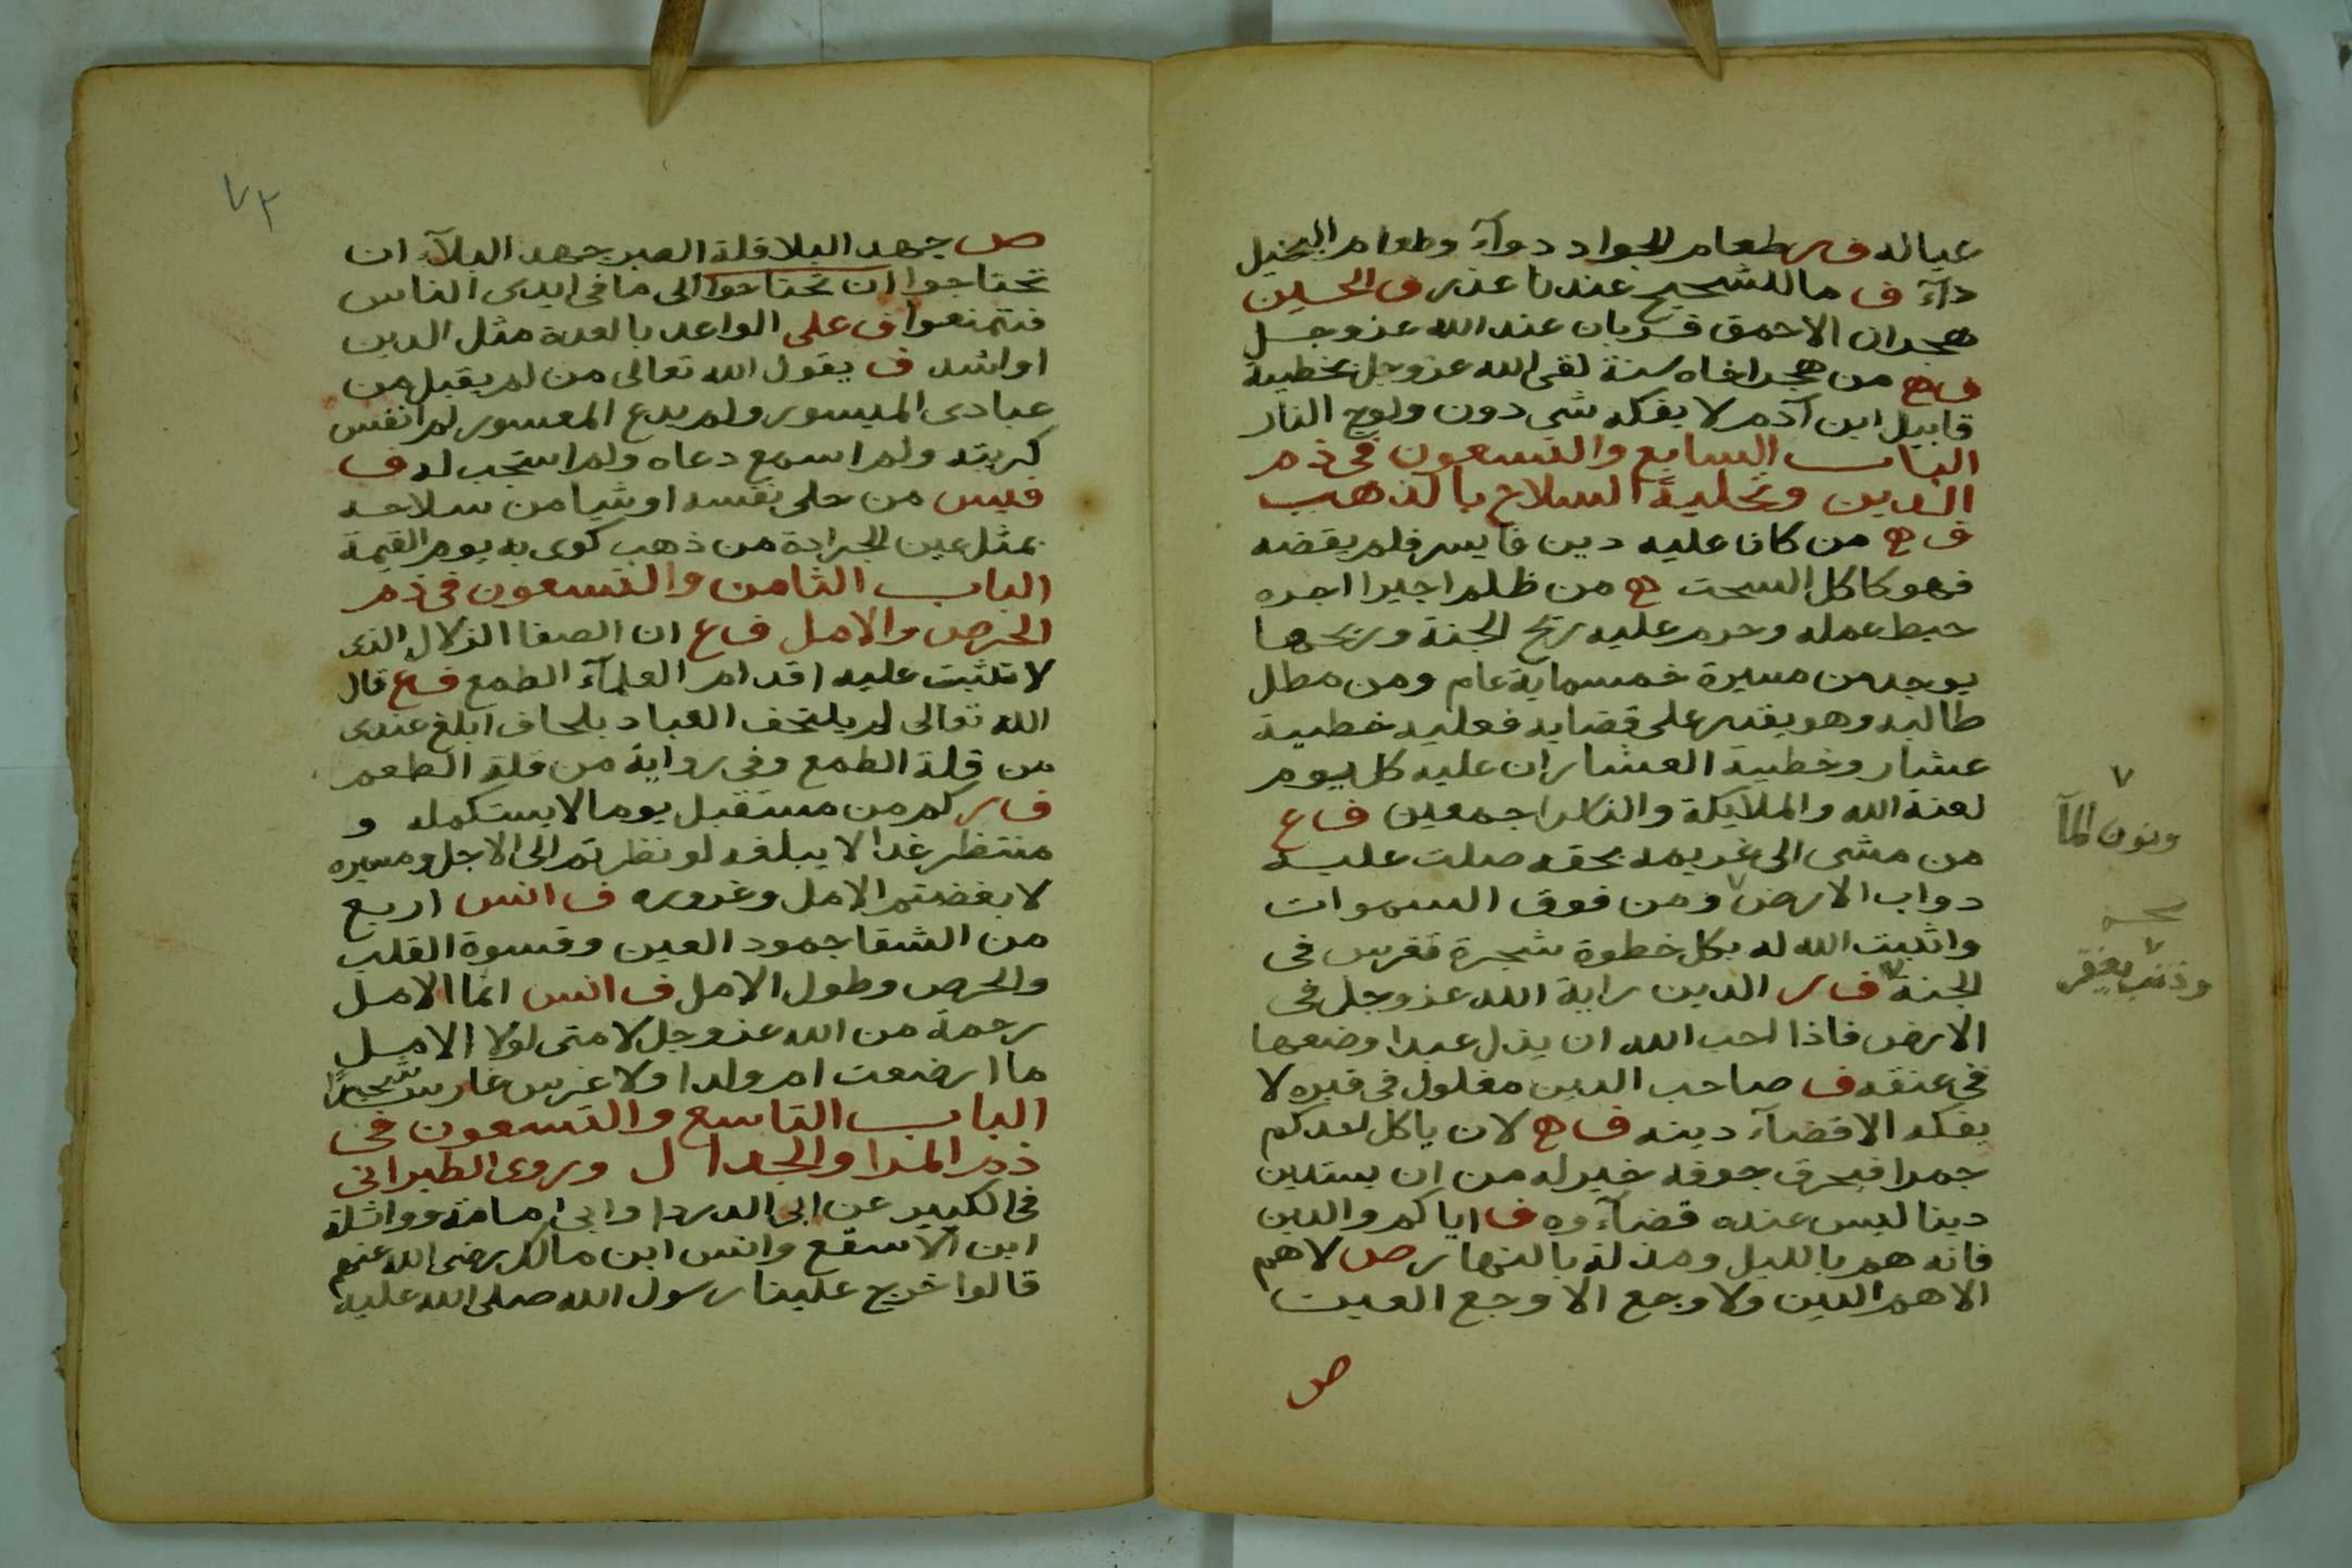 عياله ف ر طعام الجواد دوآء وطعام البخيل
دآء ف ما للشحيح عندنا عذر ف الحسين
هجران الاحمق قربان عند الله عز وجل
ف ح من هجر اخاه سنة لقى الله عز وجل بخطيية
قابيل ابن آدم لا يفكه شي دون ولوج النار
الباب السابع والتسعون فى ذم
الدين وتحلية السلاح بالذهب
ف ح من كان عليه دين فايسر فلم يقضه
فهو كاكل السحت ح من ظلم اجيرا اجره
حبط عمله وحرم عليه ريح الجنة وريحها
يوجد من مسيرة خمسماية عام ومن مطل
طالبه وهو يقدر على قضايه فعليه خطيية
عشار وخطيية العشار ان عليه كل يوم
لعنة الله والملايكة والناس اجمعين ف ع
من مشى الى غريمه بحقه صلت عليه
دواب الارض ومن فوق السموات
ونون المآ
واثبت الله له بكل خطوة شجرة تغرس فى
الجنة ف ر الدين راية الله عز وجل فى
وذنب يغفر
الارض فاذا احب الله ان يذل عبدا وضعها
فى عنقه ف صاحب الدين مغلول فى قبره لا
يفكه الا قضآء دينه ف ح لان ياكل احدكم
جمرا فيحرق جوفه خير له من ان يستدين
دينا ليس عنده قضآوه ف اياكم والدين
فانه هم بالليل ومذلة بالنهار ص لا هم
الا هم الدين ولا وجع الا وجع العين
ص
٧٢
ص جهد البلا قلة الصبر جهد البلآء ان
تحتاجوا ان تحتاجوا الى ما فى ايدى الناس
فتمنعوا ف على الواعد بالعدة مثل الدين
او اشد ف يقول الله تعالى من لم يقبل من
عبادى الميسور ولم يدع المعسور لم انفس
كربته ولم اسمع دعاه ولم استجب له ف
قيس من حلى نفسه او شيا من سلاحه
بمثل عين الجرادة من ذهب كوى به يوم القيمة
الباب الثامن والتسعون فى ذم
الحرص والامل ف ع ان الصفا الزلال الذى
لا تثبت عليه اقدام العلمآء الطمع ف ع قال
الله تعالى لم يلتحف العباد بلحاف ابلغ عندى
من قلة الطمع وفى رواية من قلة الطعم
ف ر كم من مستقبل يوما لا يستكمله و
منتظر غدا لا يبلغه لو نظرتم الى الاجل ومسيره
لابغضتم الامل وغروره ف انس اربع
من الشقا جمود العين وقسوة القلب
والحرص وطول الامل ف انس انما الامل
رحمة من الله عز وجل لامتى لولا الامل
ما ارضعت ام ولدا ولا غرس غارس شجرًا
الباب التاسع والتسعون فى
ذم المرا والجدال وروى الطبرانى
فى الكبير عن ابى الدردا وابى امامة وواثلة
ابن الاسقع وانس ابن مالك رضى الله عنهم
قالوا خرج علينا رسول الله صلى الله عليه